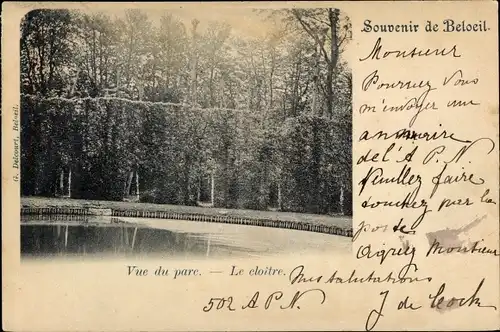 Souvenir de Beloeil.
Monsieur
Pourriez Vous
m'envoyer une
annuaire
de l'A P. N.
Veuillez faire
toucher par la
poste.
Agréez Monsieur
Mes salutations
J de Cock
502 A P. N
Vue du parc. — Le cloître.
G. Delcourt, Beloeil.